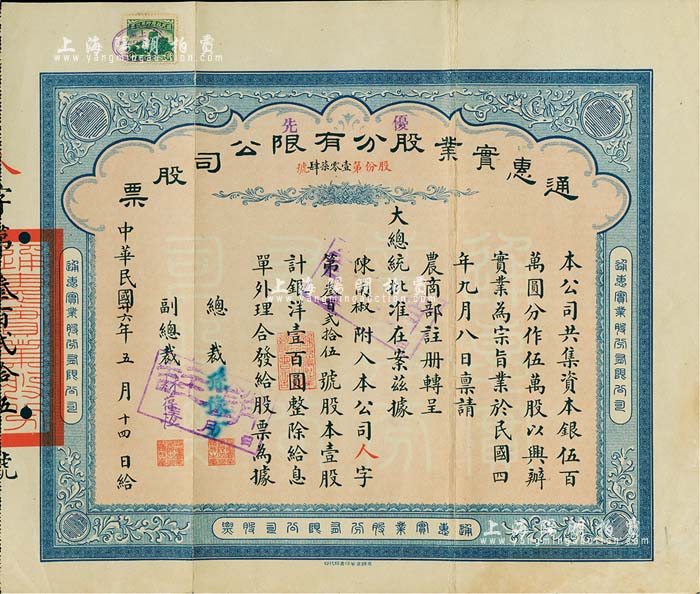 上海陽明拍賣
www.yangmingauction.com
優先
通惠實業股份有限公司股票
股份第壹零柒肆號
本公司共集資本銀伍百
萬圓分作伍萬股以興辦
實業為宗旨業於民國四
年九月八日稟請
農商部註册轉呈
大總統批准在案茲據
陳蘭椒附入本公司人字
第叁百弍拾伍號股本壹股
計銀洋壹百圓整除給息
單外理合發給股票為據
總裁
副總裁
中華民國十六年五月十四日給
人字第叁百弍拾伍號
通惠實業股份有限公司
通惠實業股份有限公司
通惠實業股份有限公司股票
上海陽明拍賣
www.yangmingauction.com